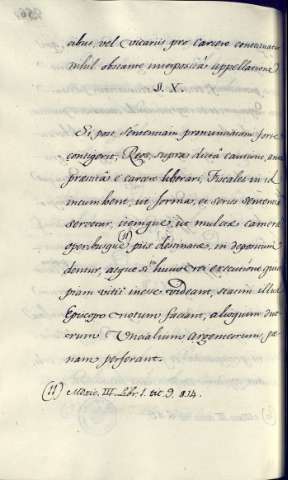 cibus, vel vicariis pro carcere constitutis
nihil obstante interposita appellatione
§. X.
Si post sententiam pronunciatam forte
contigerit, Reos, supra dicta cautione, aut
præstita e carcere liberari, Fiscales in id
incumbent, ut forma, et series sententiæ
servetur, itemque, ut mulctæ cameræ
operibusque (11) piis destinatæ, in depositum
dentur, atque si in hujus rei executione quip
piam vitii inesse videant, statim illud
Episcopo notum faciant, alioquin duo
rum Uncialium argenteorum pæ
nam perferant.
(11) Mexic. III. Libr. 1. tit. 9. §.14.